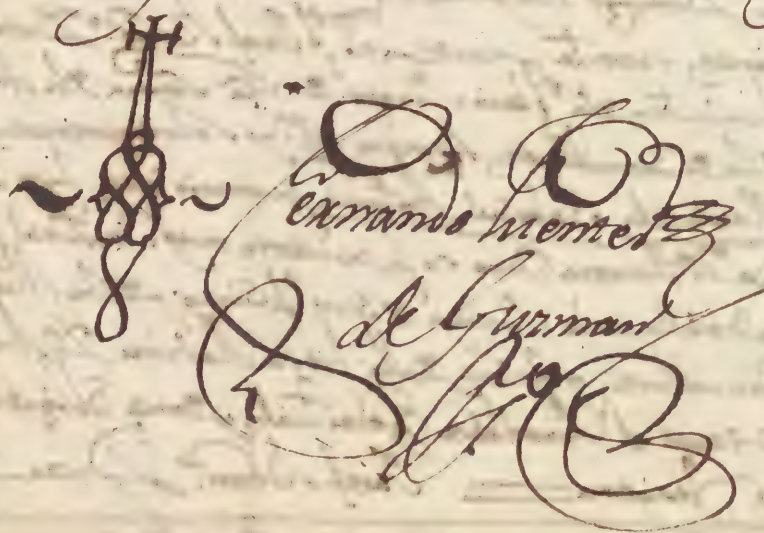 Fernando fuentes
de Guzman